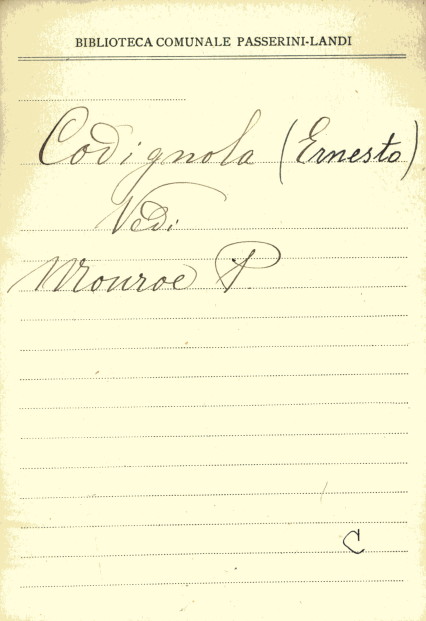 BIBLIOTECA COMUNALE PASSERINI-LANDI
Codignola (Ernesto)
Vedi
Monroe P.
C